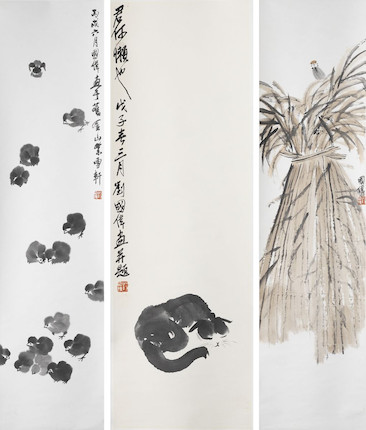 丙戌六月國偉畫于舊金山雪軒
君何懶也 戊子春三月劉國偉畫并題
國偉